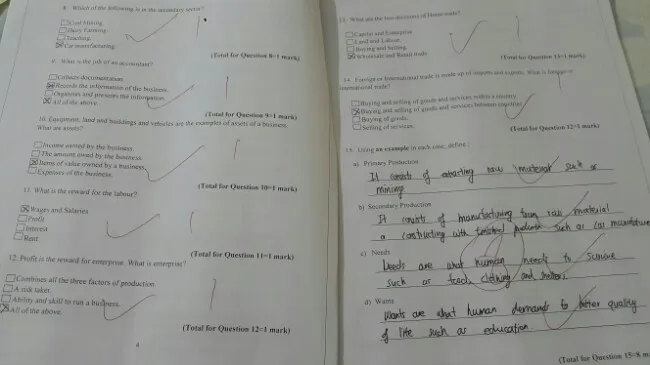 8. Which of the following is in the secondary sector?
Coal Mining.
Dairy Farming.
Teaching.
Car manufacturing.
(Total for Question 8=1 mark)
9. What is the job of an accountant?
Collects documentation.
Records the information of the business.
Organises and presents the information.
All of the above.
(Total for Question 9=1 mark)
10. Equipment, land and buildings and vehicles are the examples of assets of a business.
What are assets?
Income owned by the business.
The amount owed by the business.
Items of value owned by a business.
Expenses of the business.
(Total for Question 10=1 mark)
11. What is the reward for the labour?
Wages and Salaries
Profit
Interest
Rent
(Total for Question 11=1 mark)
12. Profit is the reward for enterprise. What is enterprise?
Combines all the three factors of production.
A risk taker.
Ability and skill to run a business.
All of the above.
(Total for Question 12=1 mark)
4
13. What are the two divisions of Home trade?
Capital and Enterprise
Land and Labour.
Buying and Selling.
Wholesale and Retail trade.
(Total for Question 13=1 mark)
14. Foreign or International trade is made up of imports and exports. What is
international trade?
Buying and selling of goods and services within a country.
Buying and selling of goods and services between countries.
Buying of goods.
Selling of services.
(Total for Question 12=1 mark)
15. Using an example in each case, define :
a) Primary Production
It consists of extracting raw material such as
mining
b) Secondary Production
It consists of manufacturing from raw material
a constructing with finished products such as car manufacture
c) Needs
Needs are what human needs to survive
such as food, clothing and shelter.
d) Wants
Wants are what human demands for better quality
of life such as education.
(Total for Question 15=8